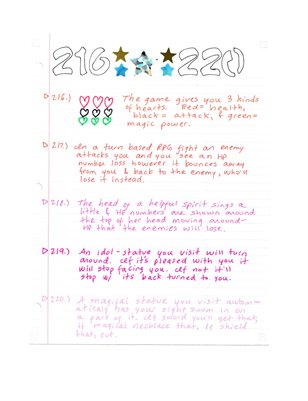 216 220
216.) The game gives you 3 kinds
of hearts. Red = health,
black = attack, & green =
magic power.
217.) In a turn based RPG fight an enemy
attacks you and you see an HP
number loss however it bounces away
from you & back to the enemy, who'll
lose it instead.
218.) The head of a helpful spirit sings a
little & HP numbers are shown around
the top of her head moving around—
HP that the enemies will lose.
219.) An idol-statue you visit will turn
around. If it's pleased with you it
will stop facing you. If not it'll
stop w/ its back turned to you.
220.) A magical statue you visit autom-
atically has your sight zoom in on
a part of it. If sword you'll get that,
if magical necklace that, if shield
that, ect.